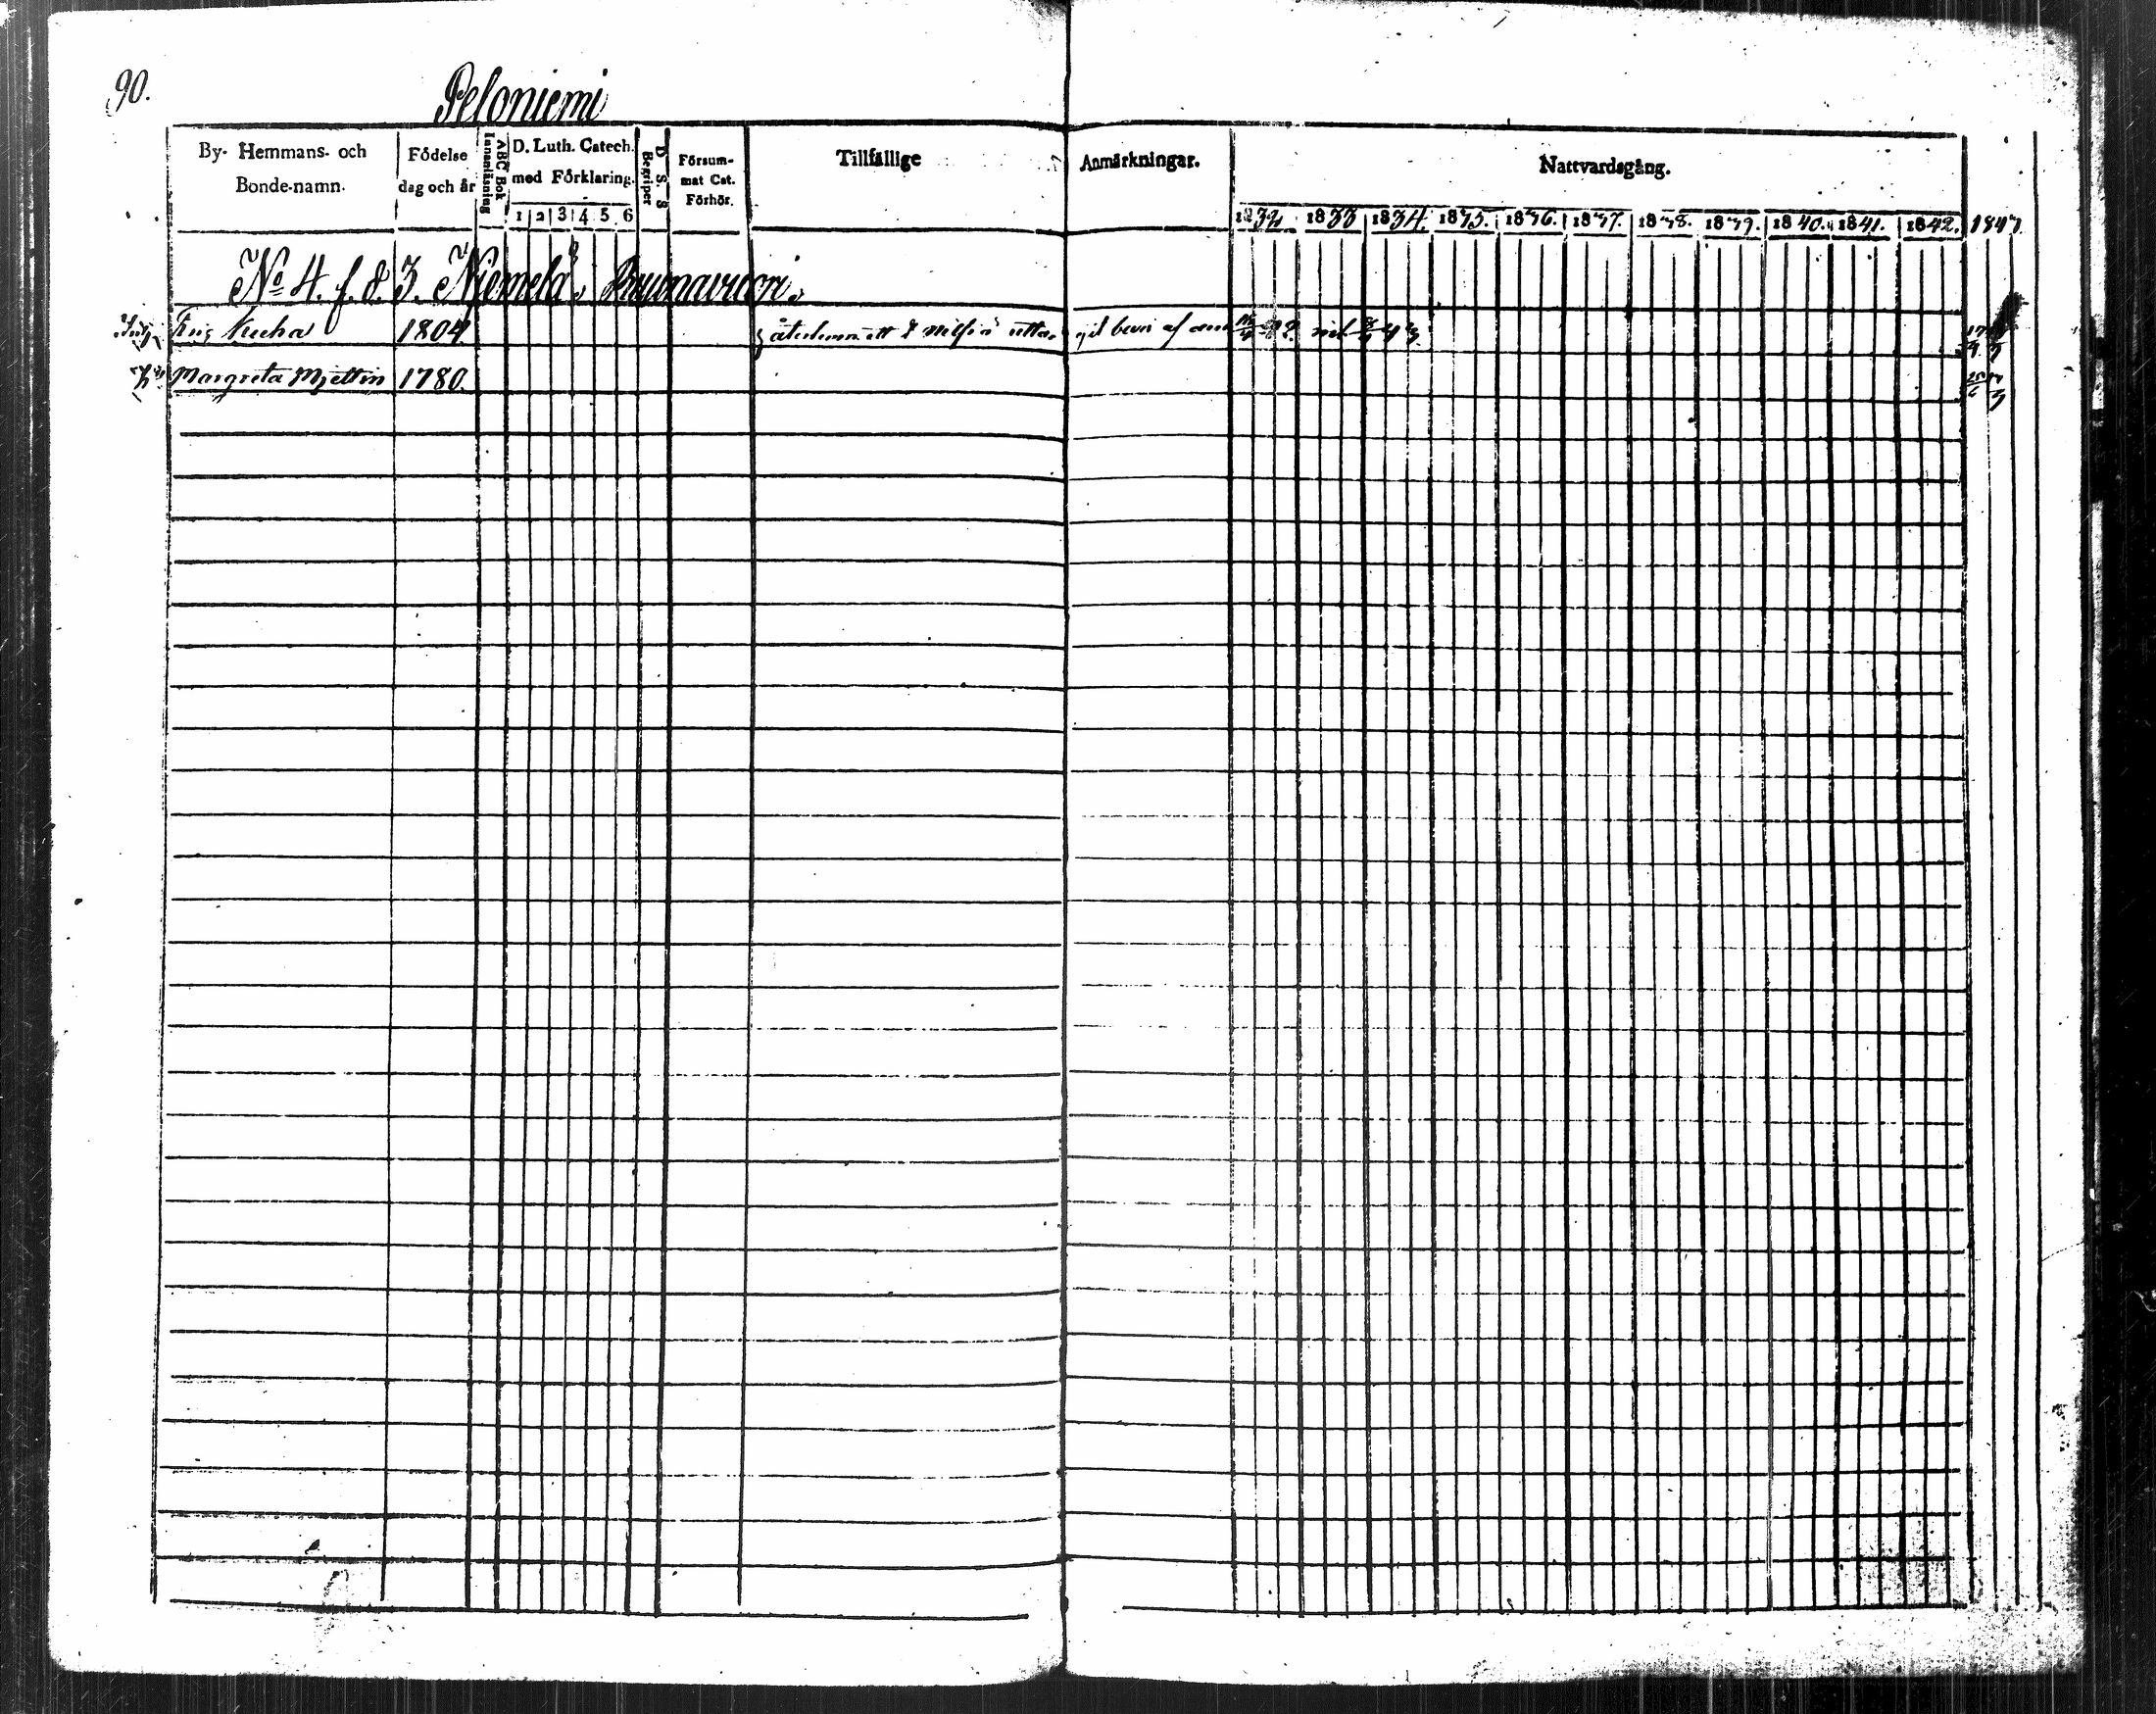 90.
Peloniemi
By- Hemmans- och
Bonde-namn.
Födelse
dag och år
ABC Bok
Innanläsning
D. Luth. Catech.
med Förklaring.
1 2 3 4 5 6
D. S. S
Begriper
Försum-
mat Cat.
Förhör.
Tillfällige
Anmärkningar.
Nattvardsgång.
1832 1833 1834. 1835. 1836. 1837. 1838. 1839. 1840. 1841. 1842. 1843.
No 4. f. d. 3. Niemelä, Raunavuori.
1804
Margreta 1780.